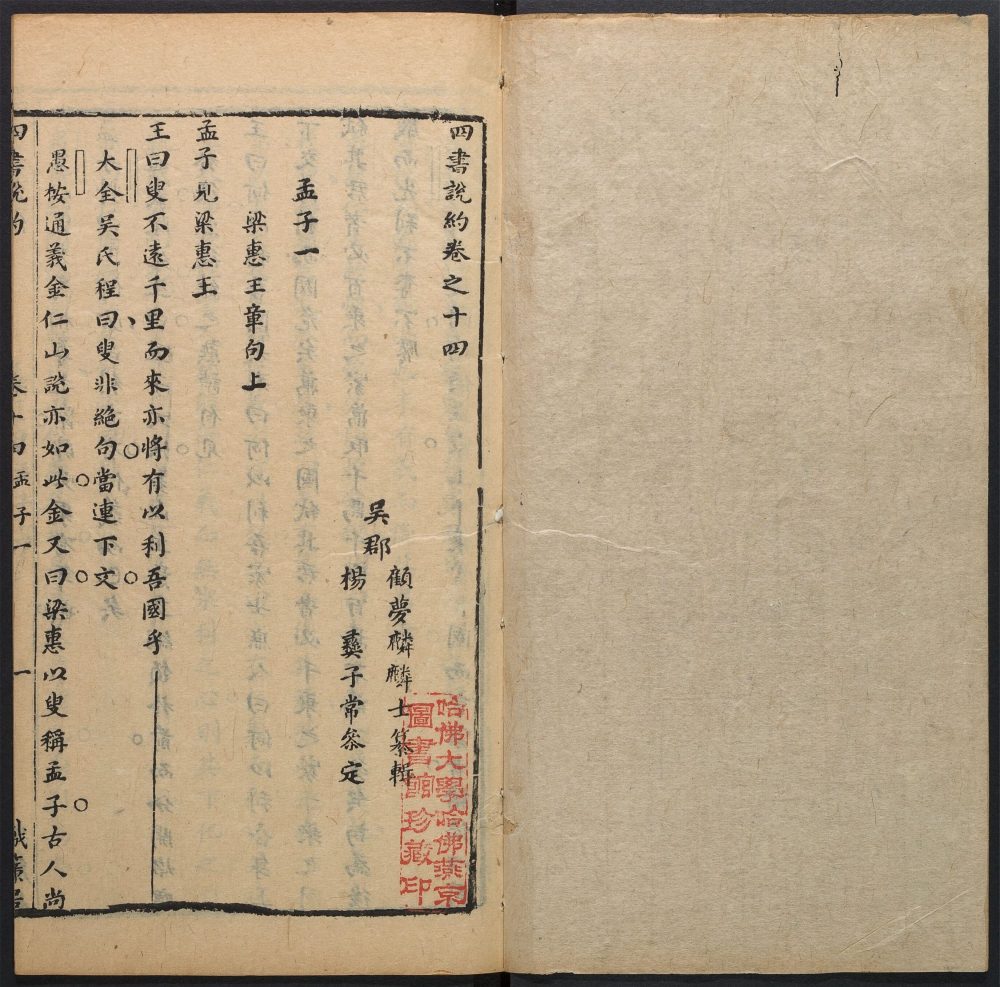 四書說約卷之十四
吳郡
顧夢麟麟士纂輯
楊彝子常叅定
孟子一
梁惠王章句上
孟子見梁惠王
王曰叟不遠千里而來亦將有以利吾國乎
大全吳氏程曰叟非絕句當連下文
愚按通義金仁山說亦如此金又曰梁惠以叟稱孟子古人尚
四書說約 卷十四孟子一 一 織簾居
哈佛大學哈佛燕京
圖書館珍藏印